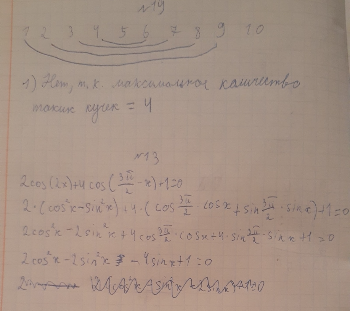 №19
1 2 3 4 5 6 7 8 9 10
1) Нет, т.к максимальное количество
таких кучек = 4
№13
2cos(2x)+4cos(3π/2 -x)+1=0
2·(cos²x-sin²x)+4·(cos 3π/2 · cosx+sin 3π/2 · sinx)+1=0
2cos²x-2sin²x+4cos 3π/2 · cosx+4·sin 3π/2 · sinx+1=0
2cos²x-2sin²x -4sinx+1=0